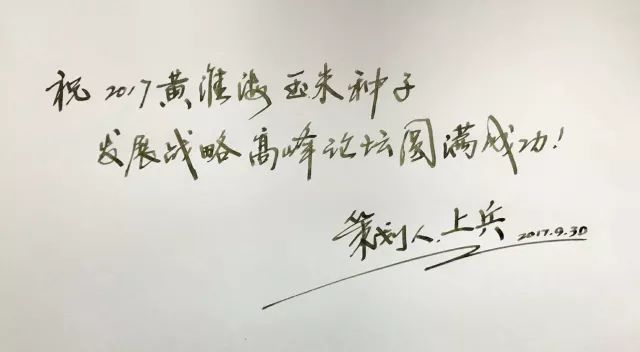 祝2017黄淮海玉米种子
发展战略高峰论坛圆满成功!
策划人.上兵 2017.9.30